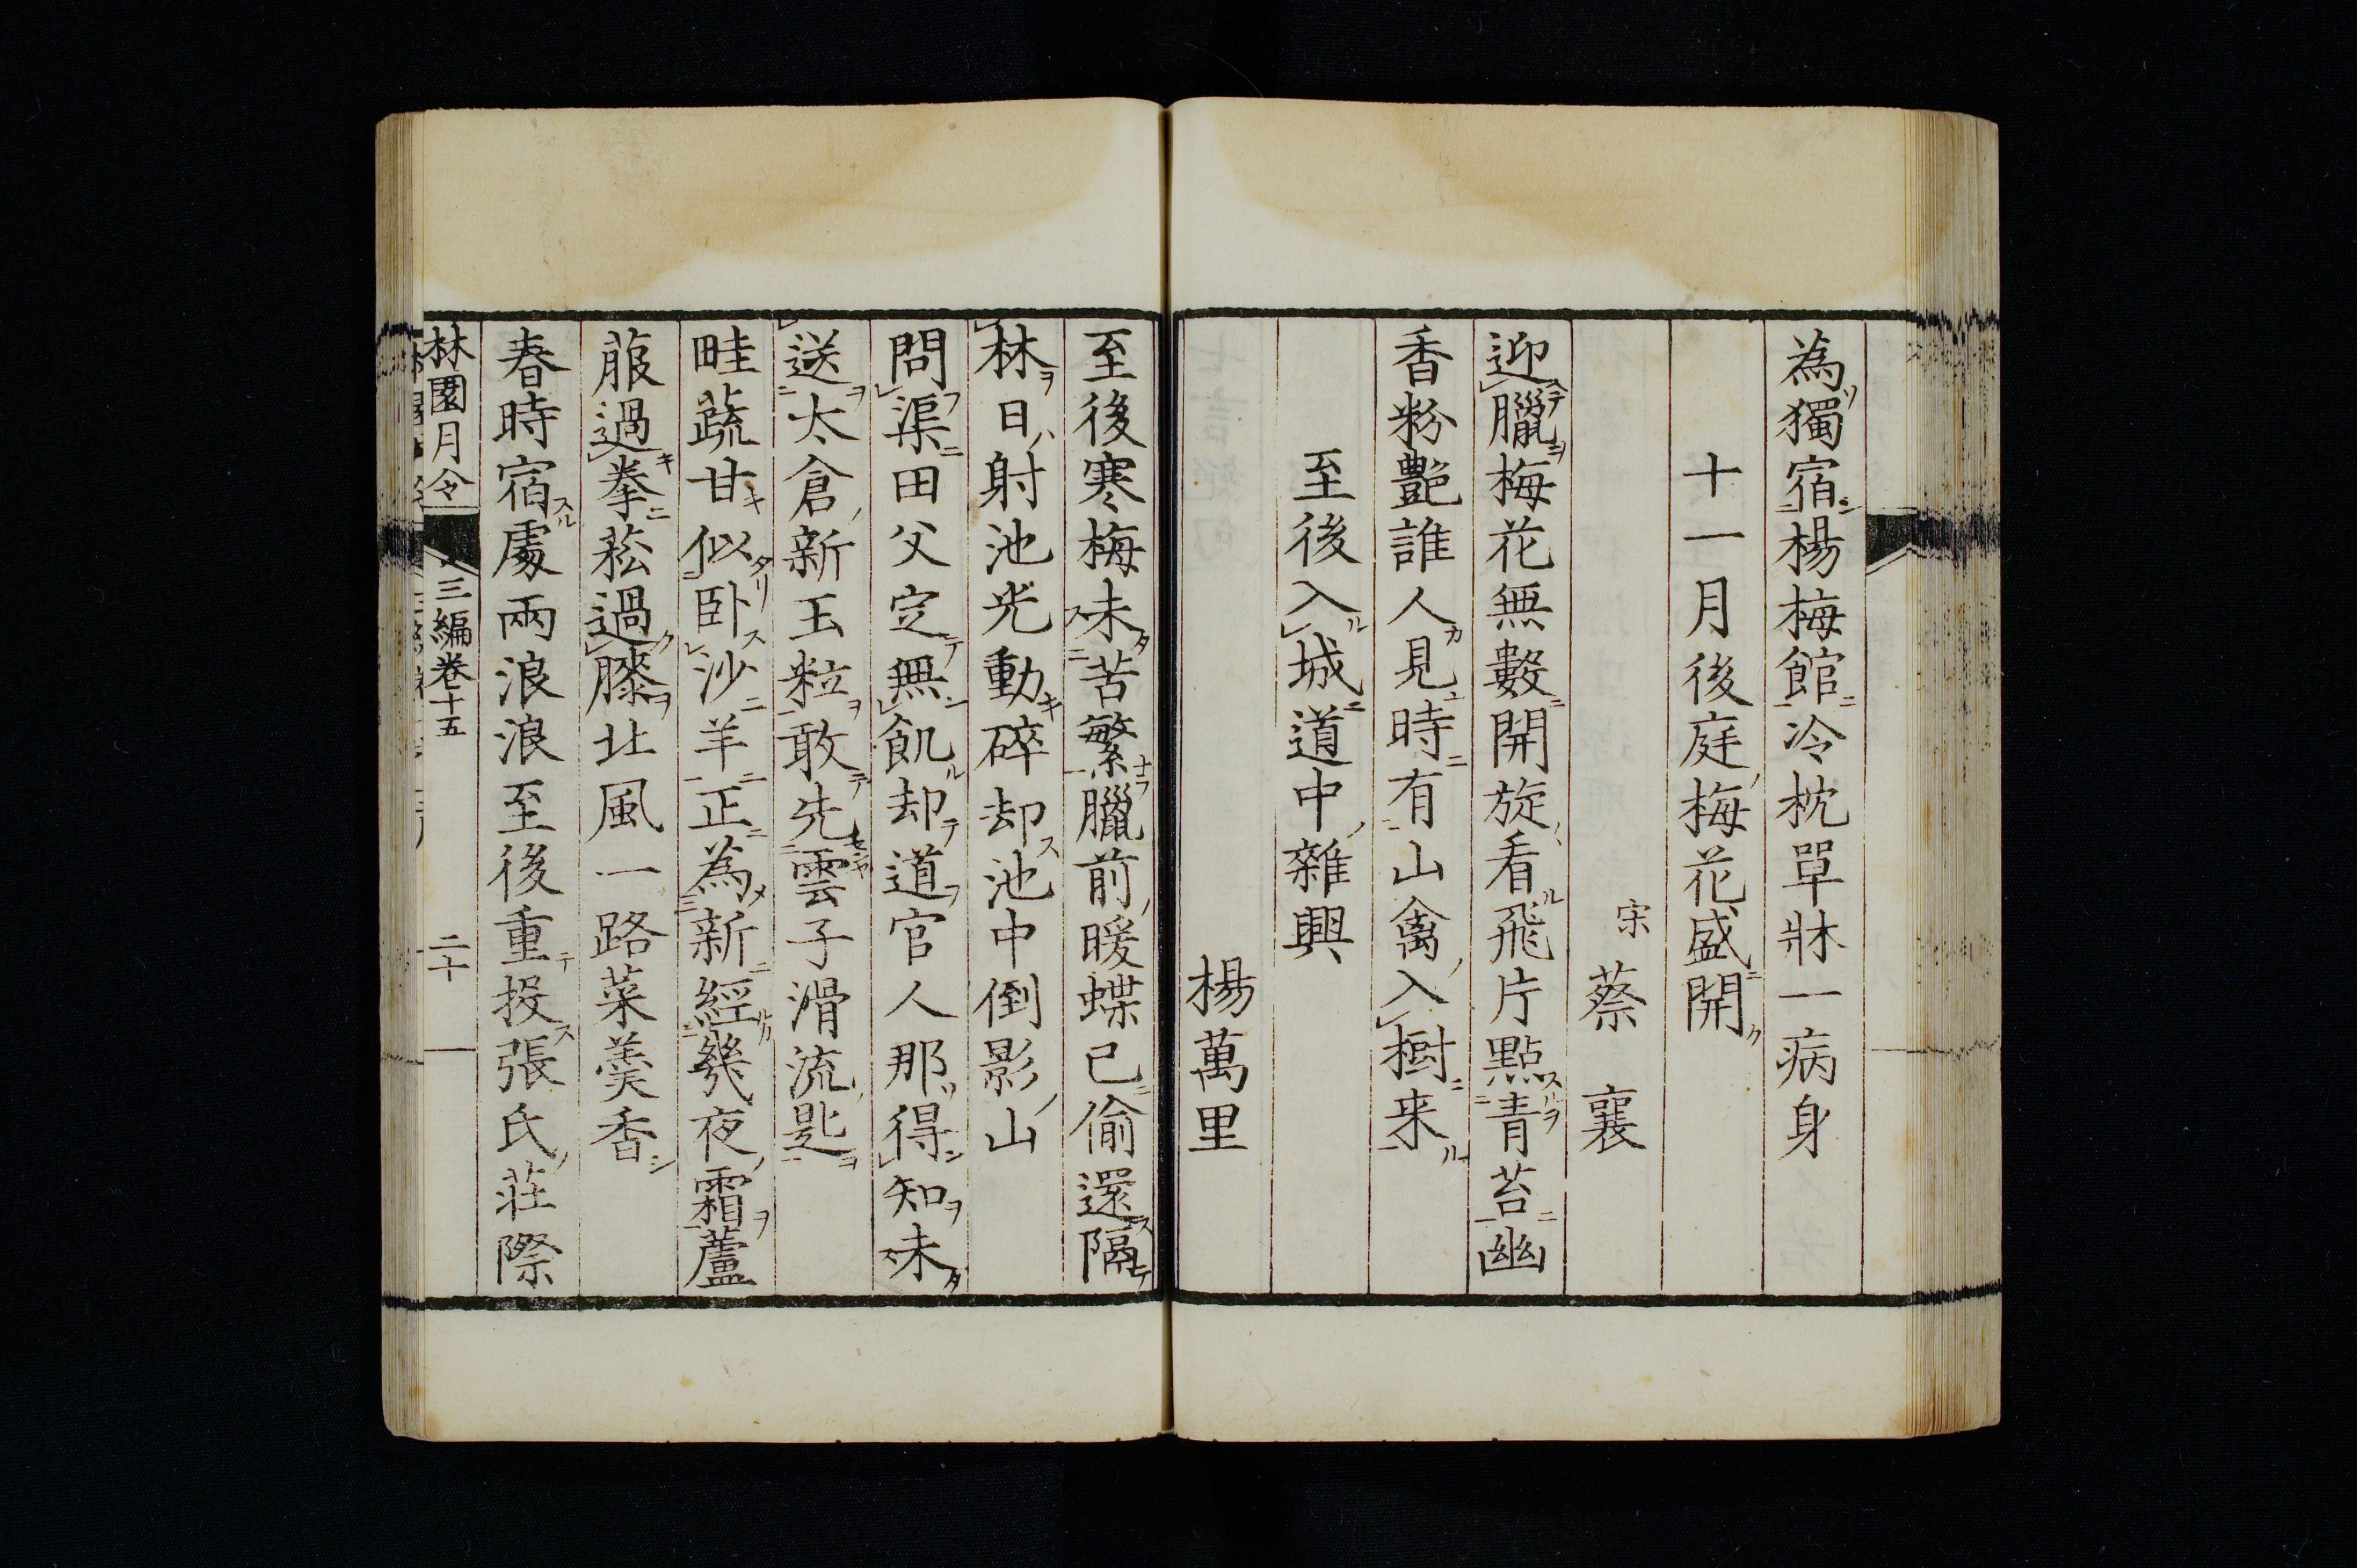 為獨宿楊梅館冷枕單牀一病身
十一月後庭梅花盛開
宋 蔡襄
迎臘梅花無數開旋看飛片點青苔幽
香粉艷誰人見時有山禽入樹来
至後入城道中雜興
楊萬里
至後寒梅未苦繁臘前暖蝶已偷還隔
林日射池光動碎却池中倒影山
問渠田父定無飢却道官人那得知未
送太倉新玉粒敢先雲子滑流匙
畦蔬甘似卧沙羊正為新經幾夜霜蘆
菔過拳菘過膝北風一路菜羹香
春時宿處兩浪浪至後重投張氏莊際
林園月令 三編卷十五 二十